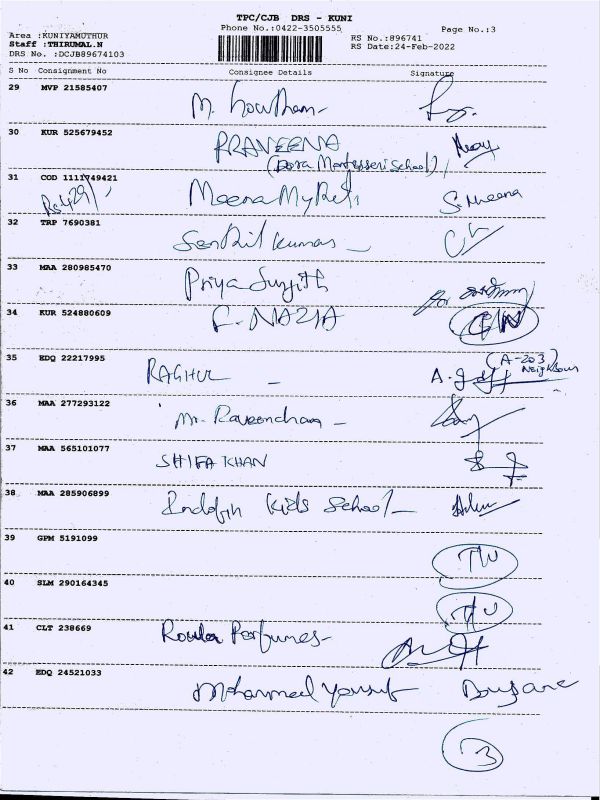 TPC/CJB DRS - KUNI
Phone No.:0422-3505555 Page No.:3
Area :KUNIYAMUTHUR RS No.:896741
Staff :THIRUMAL.N RS Date:24-Feb-2022
DRS No. :DCJB89674103
S No Consignment No Consignee Details Signature
29 MVP 21585407
M. Gowtham-
30 KUR 525679452
PRAVEENA
(Dora Montesseri School)
31 COD 1111749421
Rs429/- Meena My Reti S. Meena
32 TRP 7690381
Senthil kumar -
33 MAA 280985470
Priya Surjith
34 KUR 524880609
F. NAZIA
35 EDQ 22217995
(A-203)
RAGHUL - A. Neighbour
36 MAA 277293122
Mr. Raveendran -
37 MAA 565101077
SHIFA KHAN
38 MAA 285906899
Kids School -
39 GPM 5191099
TW
40 SLM 290164345
41 CLT 238669
Perfumes-
42 EDQ 24521033
Mohammed Yousuf
3